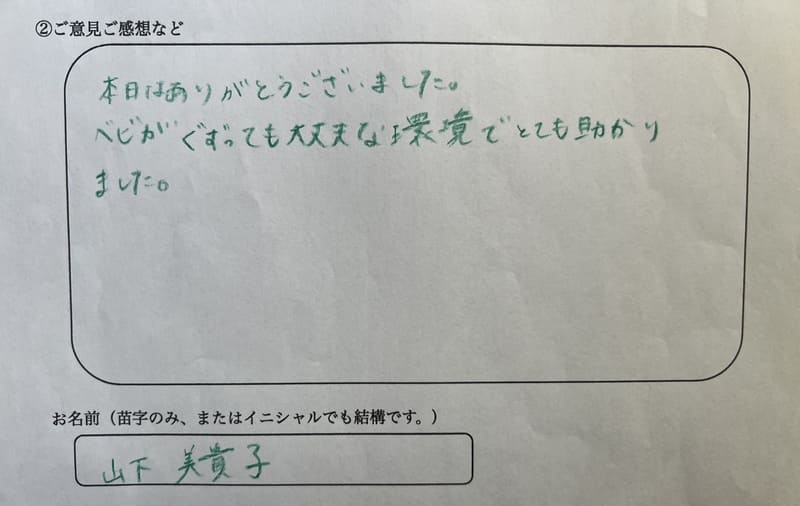 ②ご意見ご感想など
本日はありがとうございました。
ベビがぐずっても大丈夫な環境でとても助かり
ました。
お名前（苗字のみ、またはイニシャルでも結構です。）
山下 美貴子